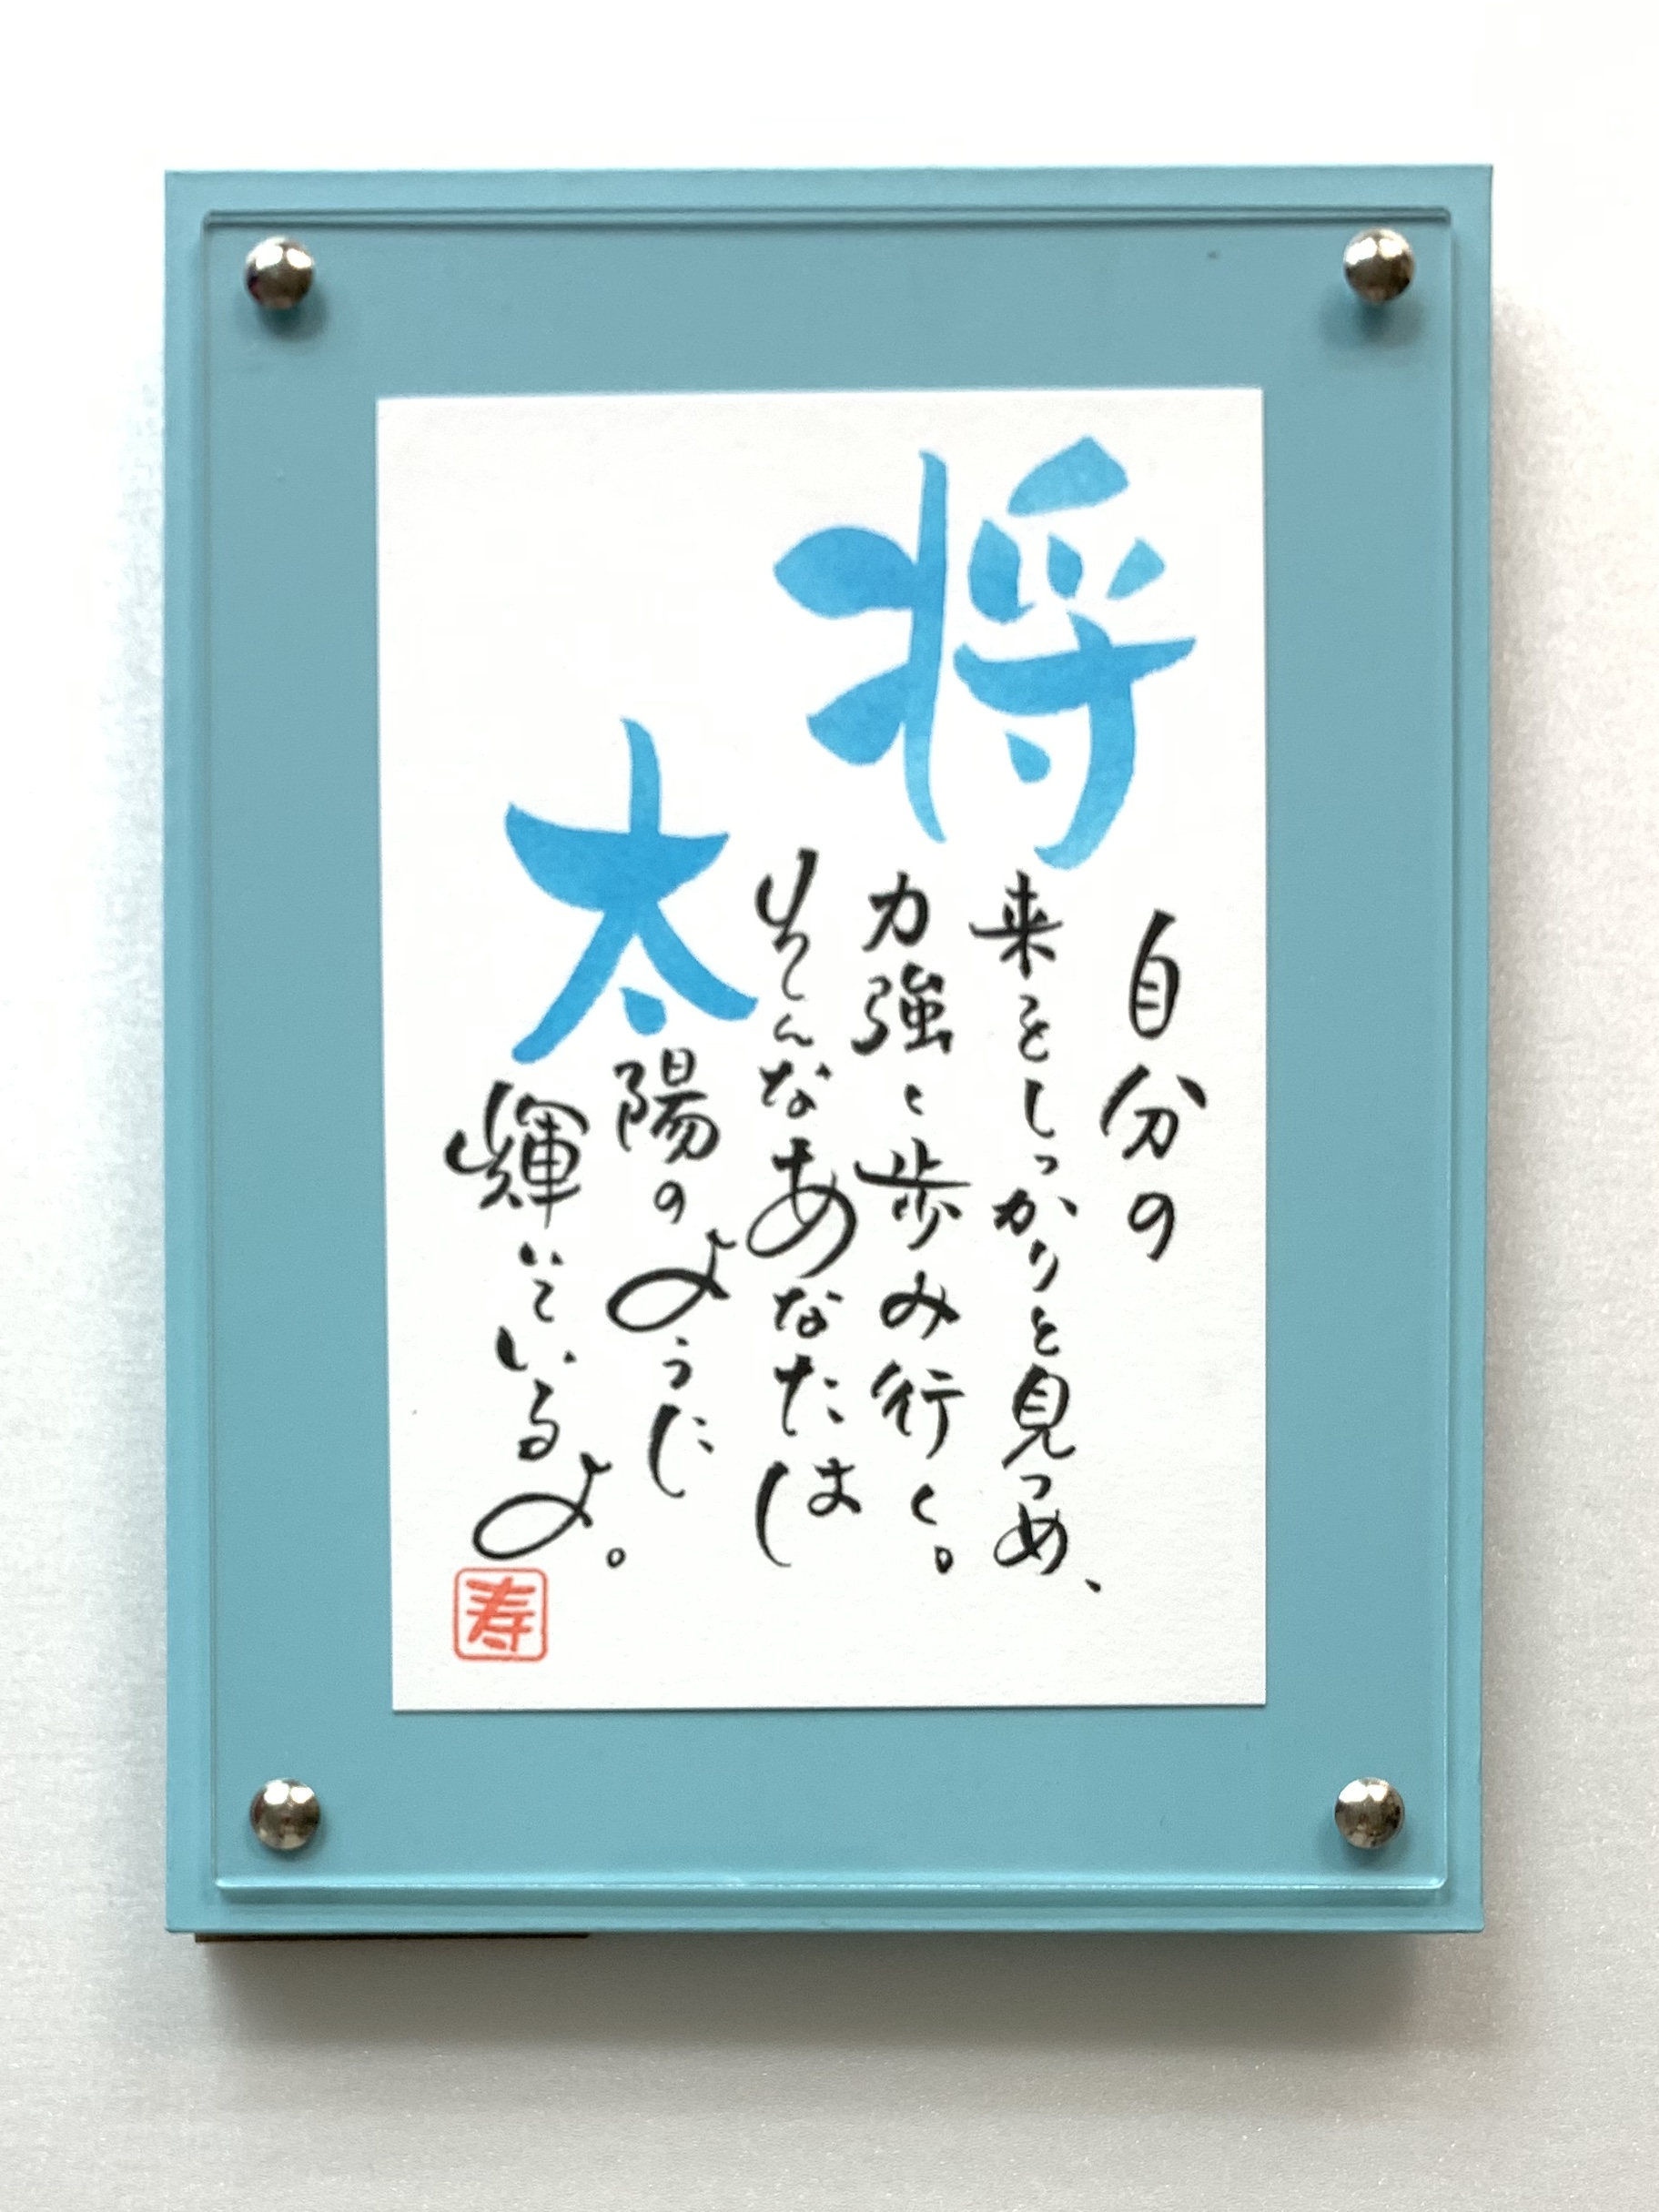 自分の
将来をしっかりと見つめ、
力強く歩み行く。
そんなあなたは
太陽のように
輝いているよ。
寿